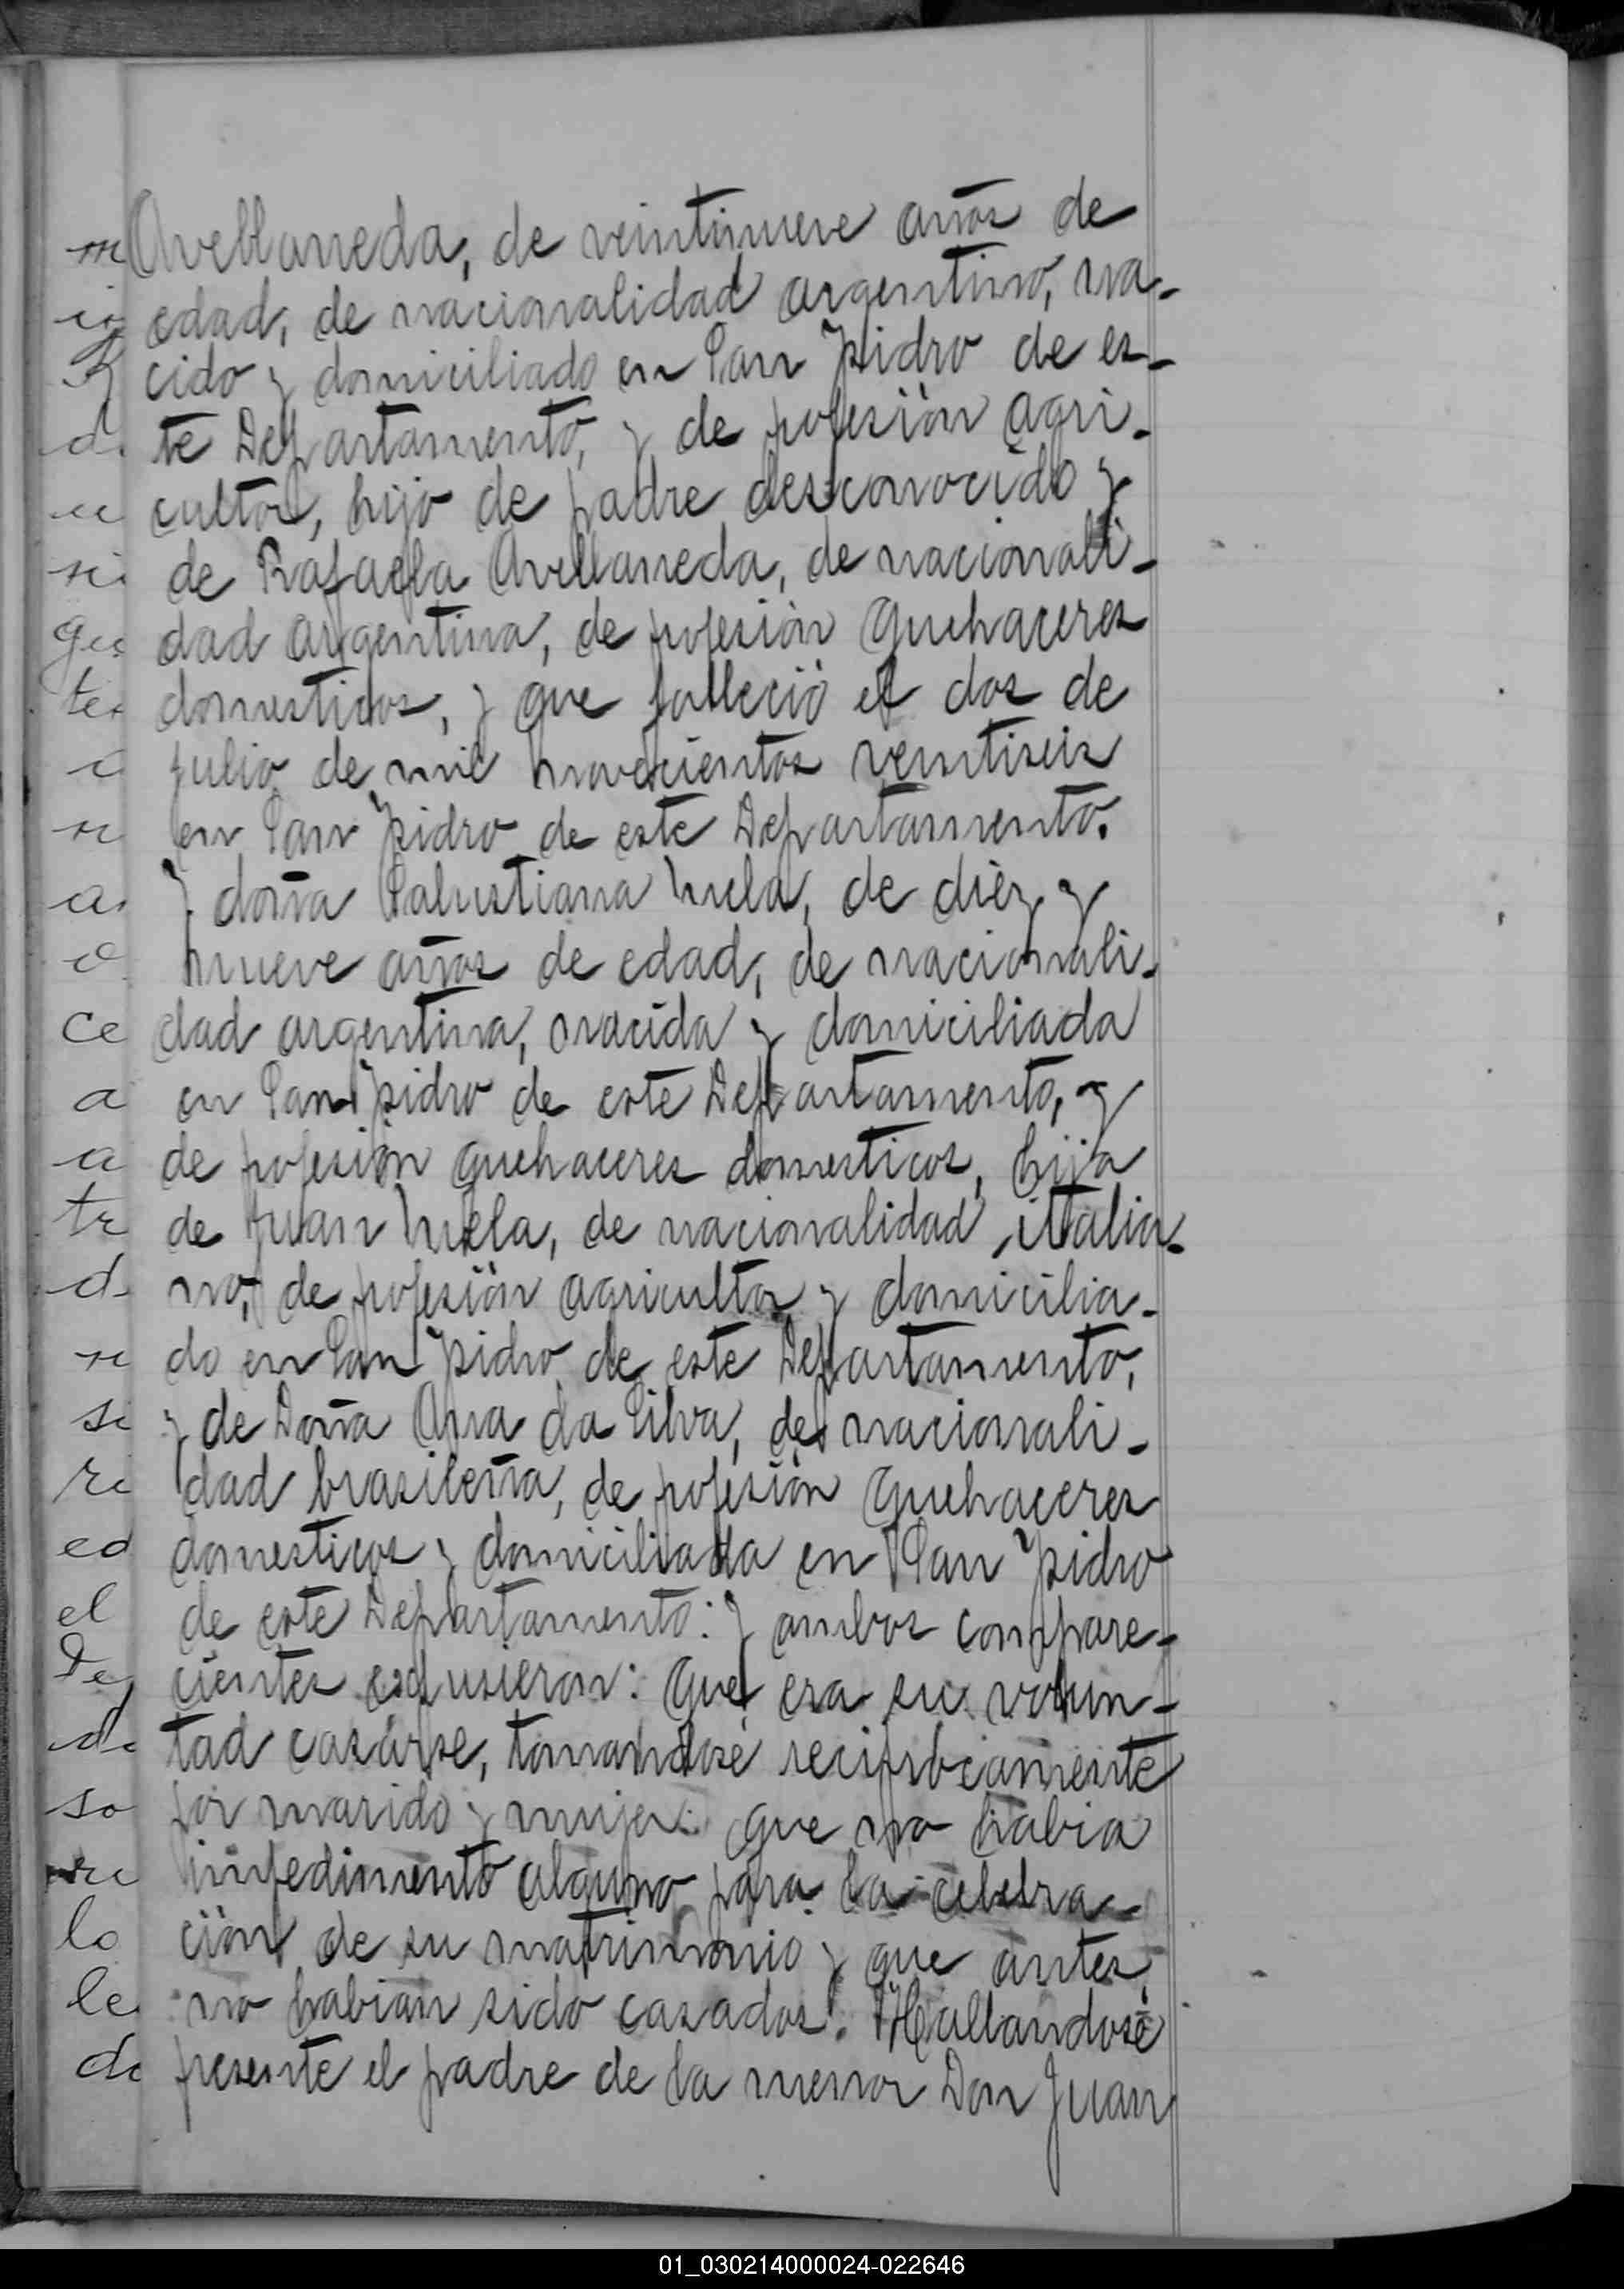 Avellaneda, de veintinueve años de
edad, de nacionalidad argentino, na-
cido y domiciliado en San Ysidro de es-
te Departamento, y de profesión agri-
cultor, hijo de padre desconocido y
de Rafaela Avellaneda, de nacionali-
dad argentina, de profesión quehaceres
domesticos, y que falleció el dos de
julio de mil novecientos veintiseis
en San Ysidro de este Departamento.
Y doña Salustiana, de diez y
nueve años de edad, de nacionali-
dad argentina, nacida y domiciliada
en San Ysidro de este Departamento, y
de profesión quehaceres domesticos, hija
de Juan, de nacionalidad italia-
no, de profesión agricultor y domicilia-
do en San Ysidro de este Departamento,
y de Doña Ana da Silva, de nacionali-
dad brasileña, de profesión quehaceres
domesticos y domiciliada en San Ysidro
de este Departamento: Y ambos compare-
cientes expusieron: Que era su volun-
tad casarse, tomandose reciprocamente
por marido y mujer: que no habia
impedimento alguno para la celebra-
ción de su matrimonio y que antes
no habian sido casados. Hallandose
presente el padre de la menor Don Juan
01_030214000024-022646